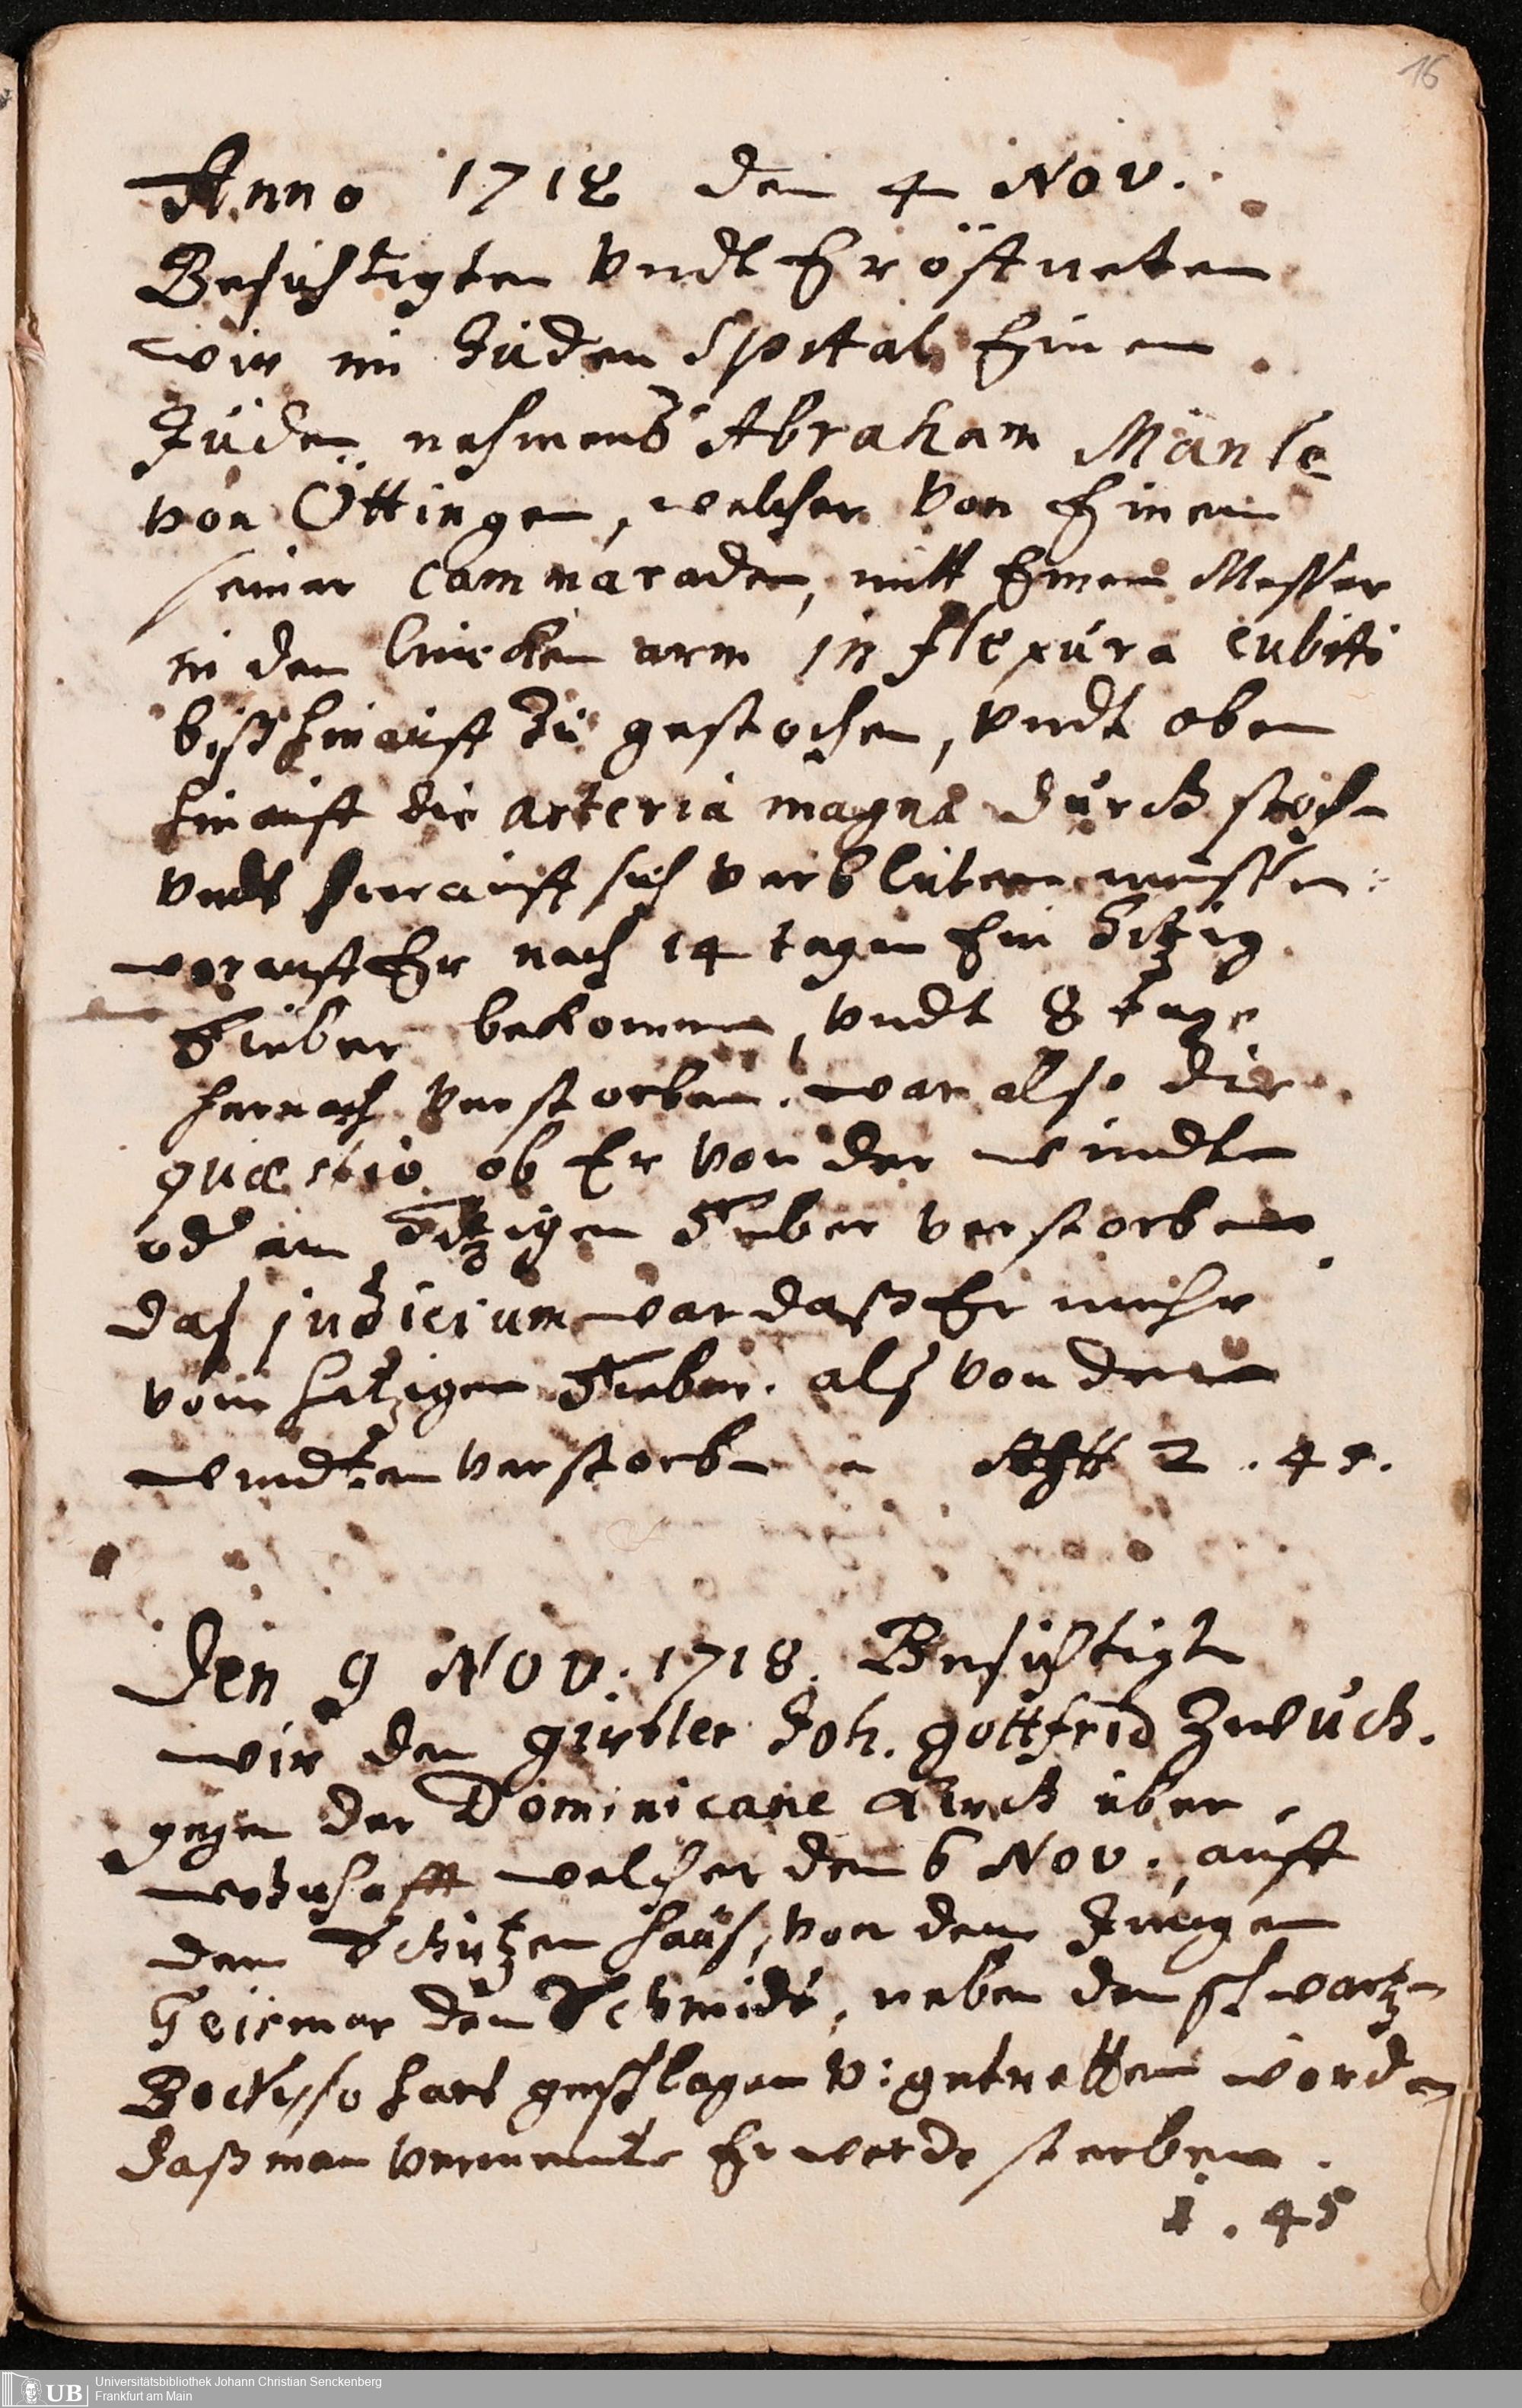 16
Anno 1718 den 4 Nov.
Besichtigten Vndt Eröffneten
wir im Juden Spital Einen
Juden nahmens Abraham Mänle
von Öttingen, welcher von Einem
seiner Cammaraden, mitt Einem Messer
in den lincken arm in flexura cubiti
biß hinauff zu gestochen, Vndt oben
hinauff die arteria magna durch stoch-
Vndt hierauff sich verbluten müssen:
worauff Er nach 14 tagen Ein hitzig
Fieber bekommen, Vndt 8 tage
hernach Verstorben. war also die
quæstio ob Er Von der wundte
od am Hitzigen Fieber verstorben
daß judicium war daß Er mehr
vom hitzigen Fieber. alß von der
wundten verstorben 2 . 45.
Den 9 Nov. 1718. Besichtigt
wir den gürtler Joh. gottfrid Zweück.
gegen der Dominicane Kirch über
wohnhafft welcher den 6 Nov. auff
dem Schützen hauß, von dem Jungen
Geismar dem Schmidt, neben dem schwartz-
Bock so hart geschlagen v: getretten worden
daß man vermeinte Er werde sterben.
1 . 45
UB Universitätsbibliothek Johann Christian Senckenberg
Frankfurt am Main